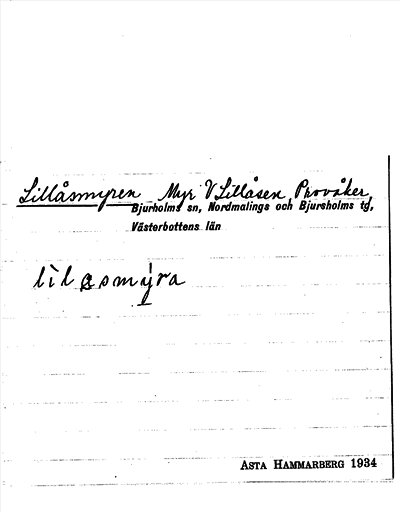 Lillåsmyren Myr V Lillåsen, Provåker,
Bjurholms sn, Nordmalings och Bjursholms tg,
Västerbottens län
lìlɞsmy̍ra
ASTA HAMMARBERG 1934